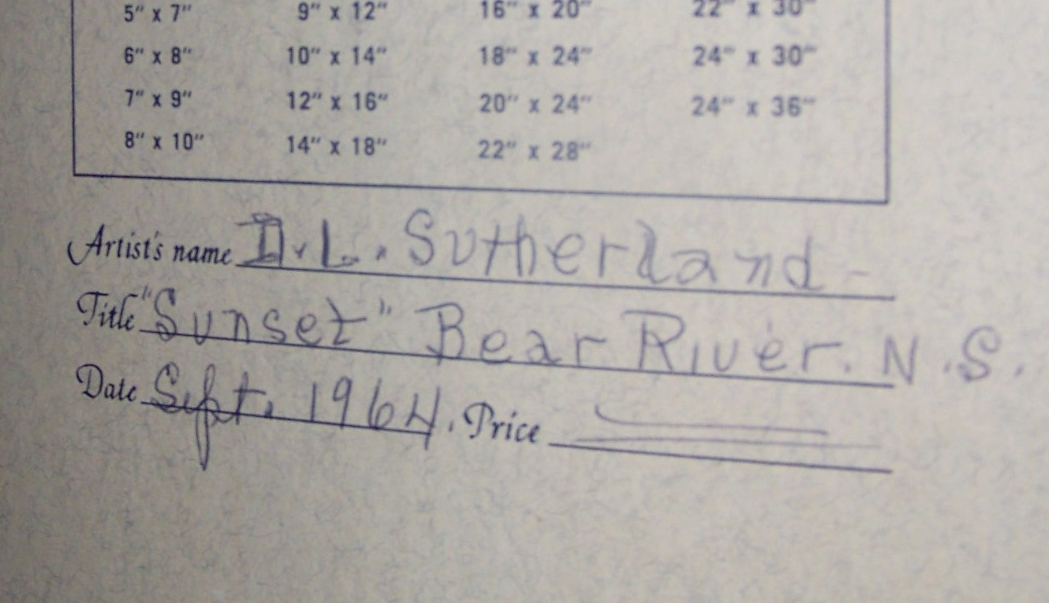 5" x 7" 9" x 12" 16" x 20" 22" x 30"
6" x 8" 10" x 14" 18" x 24" 24" x 30"
7" x 9" 12" x 16" 20" x 24" 24" x 36"
8" x 10" 14" x 18" 22" x 28"
Artist's name D.L. Sutherland -
Title "Sunset" Bear River. N.S.
Date Sept. 1964. Price